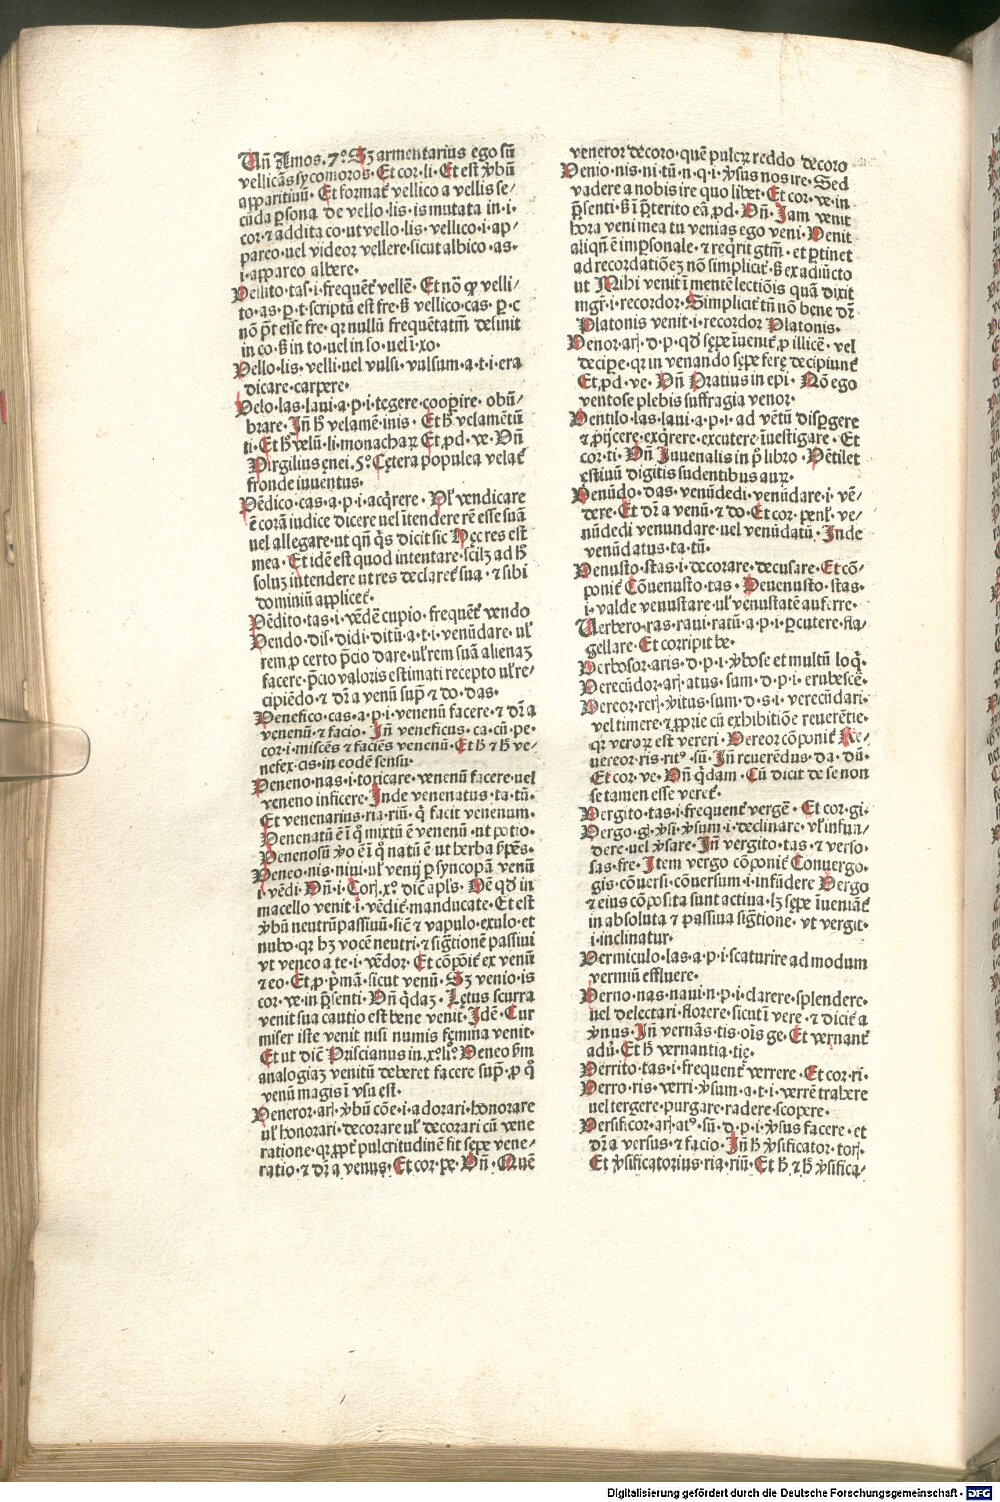 Uñ Amos.7º. Sꝫ armentarius ego sū
vellicās sycomoros. Et cor·li· Et est v̓bū
apparitiuū· Et formatᷣ vellico a vellis se/
cūda ꝑsona de vello·lis·is mutata in·i·
cor·⁊ addita co·ut vello·lis·vellico·i·ap/
pareo·uel videor vellere·sicut albico·as·
i·appareo albere·
Vellito·tas·i·frequētᷣ vellē· Et nō ꝙ velli/
to·as·ꝑ·t·scriptū est fre·ß vellico·cas·ꝑ·c
nō pt̄ esse fre·qꝛ nullū frequētatm̄ desinit
in co·ß in to·uel in so·uel ī·xo·
Vello·lis·velli·uel vulsi·vulsum·a·t·i·era
dicare·carpere·
Velo·las·laui·a·p·i·tegere·cooꝑire·obū/
brare· Jn̄ hͦ velamē·inis· Et hͦ velamētū
ti· Et hͦ velū·li·monachaꝝ Et ꝓd·ve· Vn̄
Virgilius ęnei.5º. Cętera populea velatᷣ
fronde iuuentus·
Vēdico·cas·a·p·i·acq̇rere· Ul̓ vendicare
ē corā iudice dicere uel ītendere rē esse suā
uel allegare·ut qn̄ q̇s dicit sic Hęc res est
mea· Et idē est quod intentare·scilꝫ ad hͦ
soluꝫ intendere ut res declaretᷣ sua·⁊ sibi
dominiū applicetᷣ·
Vēdito·tas·i·vēdē cupio·frequētᷣ vendo
Vendo·dis̄·didi·ditū·a·t·i·venūdare·ul̓
rem ꝓ certo p̄cio dare·ul̓ rem suā alienaꝫ
facere·p̄cio valoris estimati recepto ul̓ re/
cipiēdo·⁊ dr̄ a venū sup̄ ⁊ do·das·
Venefico·cas·a·p·i·venenū facere·⁊ dr̄ a
venenū·⁊ facio· Jn̄ veneficus·ca·cū·pe·
cor·i·miscēs ⁊ faciēs venenū· Et ħ ⁊ ħ ve/
nefex·cis·in eodē sensu·
Veneno·nas·i·toxicare·venenū facere·uel
veneno inficere· Jnde venenatus·ta·tū·
Et venenarius·ria·riū· q̇ facit venenum·
Venenatū ē ī q̊ mixtū ē venenū·ut potio·
Venenosū v̓o ē ī q̊ natū ē ut herba ẜpēs·
Veneo·nis·niui·ul̓ venij ꝑ syncopā venū
i·vēdi· Vn̄·i·Corꝭ.xº. dic̄ apl̓s· Oē qd̓ in
macello venit·i·vēditᷣ·manducate· Et est
v̓bū neutrū passiuū·sic̄ ⁊ vapulo·exulo·et
nubo·qꝛ hꝫ vocē neutri·⁊ sig̈tionē passiui
vt veneo a te·i·vēdor· Et cōpōitᷣ ex venū
⁊ eo· Et ꝓ pͥmā·sicut venū· Sꝫ venio·is
cor·ve·in p̄senti· Vn̄ q̇daꝫ· Lętus scurra
venit sua cautio est bene venit· Jdē· Cur
miser iste venit nisi numis fęmina venit·
Et ut dic̄ Priscianus in.xº.li°. Veneo ẜm
analogiaꝫ venitū deberet facere sup̄·ꝓ q̊
venū magis ī vsu est·
Veneror·arꝭ·v̓bū cōe·i·adorari·honorare
ul̓ honorari·decorare ul̓ decorari cū vene
ratione·qꝛ ꝓpt̓ pulcritudinē fit sępe vene/
ratio·⁊ dr̄ a venus· Et cor·pe· Vn̄· Quē
veneror decoro·quē pulcꝝ reddo decoro
Venio·nis·ni·tū·n·q·i·v̓sus nos ire·Sed
vadere a nobis ire quo libet· Et cor·ve·in
p̄senti·ß ī p̄terito eā ꝓd· Vn̄· Jam venit
hora veni mea tu venias ego veni· Venit
aliqn̄ ē imꝑsonale·⁊ req̇rit gtm̄·et ꝑtinet
ad recordatiōeꝫ nō simplicitᷣ·ß ex adiūcto
ut Mihi venit ī mentē lectiōis quā dixit
mgr̄·i·recordor· Simplicitᷣ tn̄ nō bene dr̄
Platonis venit·i·recordor Platonis·
Venor·arꝭ·d·p·qd̓ sępe īuenitᷣ ꝓ illicē·vel
decipe·qꝛ in venando sępe ferę decipiunt̄
Et ꝓd·ve· Vn̄ Oratius in epi· Nō ego
ventose plebis suffragia venor·
Ventilo·las·laui·a·p·i·ad vētū disꝑgere
⁊ ꝓijcere·exq̇rere·excutere·īuestigare· Et
cor·ti· Vn̄ Juuenalis in pͥ libro· Vētilet
estiuū digitis sudentibus auꝝ·
Venūdo·das·venūdedi·venūdare·i·vē/
dere· Et dr̄ a venū·⁊ do· Et cor·penl̓·ve/
nūdedi venundare uel venūdatū· Jnde
venūdatus·ta·tū·
Venusto·stas·i·decorare·decusare· Et cō/
ponitᷣ Cōuenusto·tas· Deuenusto·stas·
i·valde venustare·ul̓ venustatē auferre·
Verbero·ras·raui·ratū·a·p·i·ꝑcutere·fla/
gellare· Et corripit be·
Verbosor·aris·d·p·i·v̓bose et multū loq̇·
Verecūdor·arꝭ·atus·sum·d·p·i·erubescē·
Vereor·rerꝭ·v̓itus·sum·d·s·i·verecūdari·
vel timere·⁊ ꝓprie cū exhibitiōe reuerētie·
qꝛ veroꝝ est vereri· Vereor cōponitᷣ Re/
uereor·ris·rit9·sū· Jn̄ reuerēdus·da·dū·
Et cor·ve· Vn̄ q̇dam· Cū dicit de se non
se tamen esse veretᷣ·
Vergito·tas·i·frequentᷣ vergē· Et cor·gi·
Vergo·gꝭ·v̓si·v̓sum·i·declinare·vl̓ infun/
dere·uel v̓sare· Jn̄ vergito·tas·⁊ verso·
sas·fre· Jtem vergo cōponitᷣ Conuergo·
gis·cōuersi·cōuersum·i·infūdere Vergo
⁊ eius cōposita sunt actiua·lꝫ sępe īueniātᷣ
in absoluta ⁊ passiua sig̈tione·vt vergit·
i·inclinatur·
Vermiculo·las·a·p·i·scaturire ad modum
vermiū effluere·
Verno·nas·naui·n·p·i·clarere·splendere·
uel delectari·florere·sicut ī vere·⁊ dicitᷣ a
v̓nus· Jn̄ vernās·tis·oīs ge· Et vernantᷣ
adū· Et ħ vernantia·tię·
Verrito·tas·i·frequentᷣ verrere· Et cor·ri·
Verro·ris·verri·v̓sum·a·t·i·verrē trahere
uel tergere·purgare·radere·scopere·
Versificor·arꝭ·at9·sū·d·p·i·v̓sus facere·et
dr̄ a versus·⁊ facio· Jn̄ ħ v̓sificator·torꝭ·
Et v̓sificatorius·ria·riū· Et ħ ⁊ ħ v̓sifica/
Digitalisierung gefördert durch die Deutsche Forschungsgemeinschaft - DFG